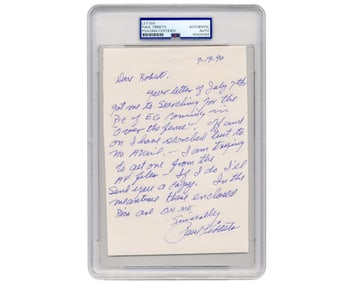 LETTER
PAUL TIBBETS
PSA/DNA CERTIFIED
AUTHENTIC
AUTO
7-19-90
Dear Robert,
Your letter of July 7th
got me to searching for the
Pic of EG coming in
"over the fence".
on I have searched but to
no avail. - I am trying
to get one from the
AF files - If I do, I'll
send you a copy. In the
meantime these enclosed
pics are on me.
Sincerely
Paul Tibbets